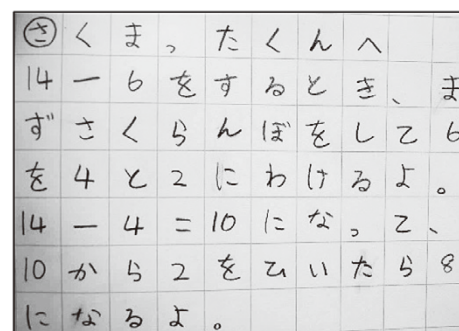 さくま、たくんへ
14－6をするとき、ま
ずさくらんぼをして6
を4と2にわけるよ。
14－4＝10になって、
10から2をひいたら8
になるよ。